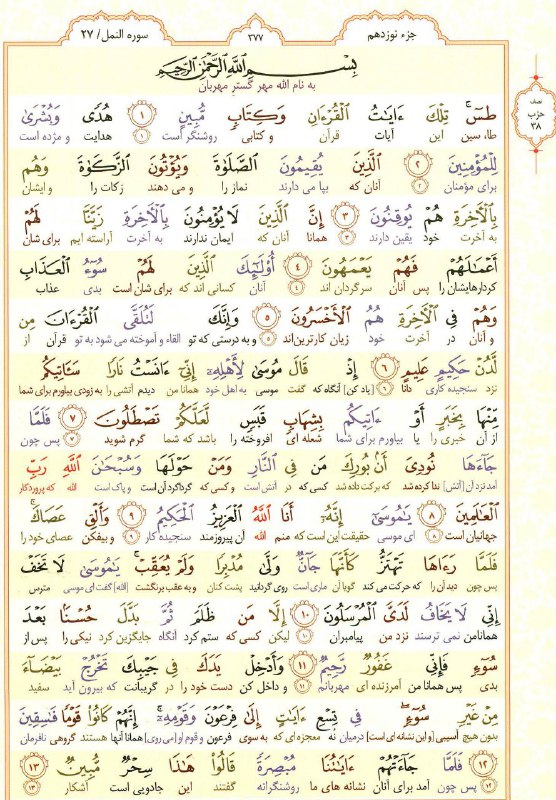 جزء نوزدهم
۳۷۷
سوره النمل/ ۲۷
نصف حزب ۳۸
بِسْمِ اللَّهِ الرَّحْمَٰنِ الرَّحِيمِ
به نام الله مهر گستر مهربان
طسٓ ۚ تِلْكَ ءَايَاتُ الْقُرْءَانِ وَكِتَابٍ مُّبِينٍ ۱ هُدًى وَبُشْرَىٰ
طا، سین این آیات قرآن و کتابی روشنگر است ۱ هدایت و مژده است
لِلْمُؤْمِنِينَ ۲ الَّذِينَ يُقِيمُونَ الصَّلَوٰةَ وَيُؤْتُونَ الزَّكَوٰةَ وَهُم
برای مؤمنان ۲ آنان که بپا می دارند نماز را و می دهند زکات را و ایشان
بِالْآخِرَةِ هُمْ يُوقِنُونَ ۳ إِنَّ الَّذِينَ لَا يُؤْمِنُونَ بِالْآخِرَةِ زَيَّنَّا لَهُمْ
به آخرت خود یقین دارند ۳ همانا آنان که ایمان ندارند به آخرت آراسته ایم برای شان
أَعْمَالَهُمْ فَهُمْ يَعْمَهُونَ ۴ أُوْلَٰئِكَ الَّذِينَ لَهُمْ سُوءُ الْعَذَابِ
کردارهایشان را پس آنان سرگردان اند ۴ آنان کسانی اند که برای شان است بدی عذاب
وَهُمْ فِي الْآخِرَةِ هُمُ الْأَخْسَرُونَ ۵ وَإِنَّكَ لَتُلَقَّى الْقُرْءَانَ مِن
و آنان در آخرت خود زیان کارترین‌اند ۵ و به درستی که تو القاء و آموخته می شود به تو قرآن از
لَّدُنْ حَكِيمٍ عَلِيمٍ ۶ إِذْ قَالَ مُوسَىٰ لِأَهْلِهِ إِنِّي ءَانَسْتُ نَارًا سَـَٔاتِيكُم
نزد سنجیده کاری دانا ۶ [یاد کن] آنگاه که گفت موسی به اهل خود همانا من دیدم آتشی را به زودی بیاورم برای شما
مِّنْهَا بِخَبَرٍ أَوْ ءَاتِيكُم بِشِهَابٍ قَبَسٍ لَّعَلَّكُمْ تَصْطَلُونَ ۷ فَلَمَّا
از آن خبری را یا بیاورم برای شما شعله ای افروخته را باشد که شما گرم شوید ۷ پس چون
جَاءَهَا نُودِيَ أَن بُورِكَ مَن فِي النَّارِ وَمَنْ حَوْلَهَا وَسُبْحَانَ اللَّهِ رَبِّ
آمد نزد آن [آتش] ندا کرده شد که برکت داده شد کسی که در آتش است و کسی که گرداگرد آن است و پاک است الله که پروردگار
الْعَالَمِينَ ۸ يَٰمُوسَىٰ إِنَّهُ أَنَا اللَّهُ الْعَزِيزُ الْحَكِيمُ ۹ وَأَلْقِ عَصَاكَ ۚ
جهانیان است ۸ ای موسی حقیقت این است که منم الله آن پیروزمند سنجیده کار ۹ و بیفکن عصای خود را
فَلَمَّا رَءَاهَا تَهْتَزُّ كَأَنَّهَا جَانٌّ وَلَّىٰ مُدْبِرًا وَلَمْ يُعَقِّبْ ۚ يَٰمُوسَىٰ لَا تَخَفْ
پس چون دید آن را که حرکت می کند گویا آن ماری است روی گردانید پشت کنان و به عقب برنگشت [الله] گفت ای موسی مترس
إِنِّي لَا يَخَافُ لَدَيَّ الْمُرْسَلُونَ ۱۰ إِلَّا مَن ظَلَمَ ثُمَّ بَدَّلَ حُسْنًا بَعْدَ
همانا من نمی ترسند نزد من پیامبران ۱۰ لیکن کسی که ستم کرد آنگاه جایگزین کرد نیکی را پس از
سُوءٍ فَإِنِّي غَفُورٌ رَّحِيمٌ ۱۱ وَأَدْخِلْ يَدَكَ فِي جَيْبِكَ تَخْرُجْ بَيْضَاءَ
بدی پس همانا من آمرزنده ای مهربانم ۱۱ و داخل کن دست خود را در گریبانت که بیرون آید سفید
مِنْ غَيْرِ سُوءٍ ۖ فِي تِسْعِ ءَايَاتٍ إِلَىٰ فِرْعَوْنَ وَقَوْمِهِ ۚ إِنَّهُمْ كَانُوا قَوْمًا فَاسِقِينَ
بدون هیچ آسیبی [و این نشانه ای است] درمیان نُه معجزه ای که به سوی فرعون و قوم او [می روی] همانا آنها هستند گروهی نافرمان
۱۲ فَلَمَّا جَاءَتْهُمْ ءَايَاتُنَا مُبْصِرَةً قَالُوا هَٰذَا سِحْرٌ مُّبِينٌ ۱۳
۱۲ پس چون آمد برای آنان نشانه های ما روشنگرانه گفتند این جادویی است آشکار ۱۳